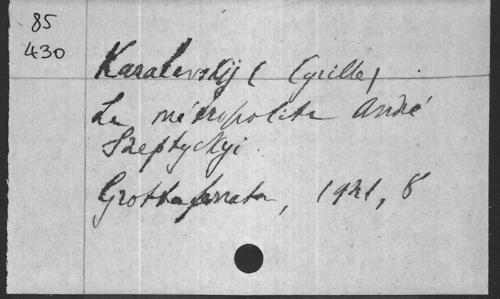 85
430
Karalevskij (Cyrille)
Le métropolite André
Szeptyckyi.
Grottaferrata, 1921, 8